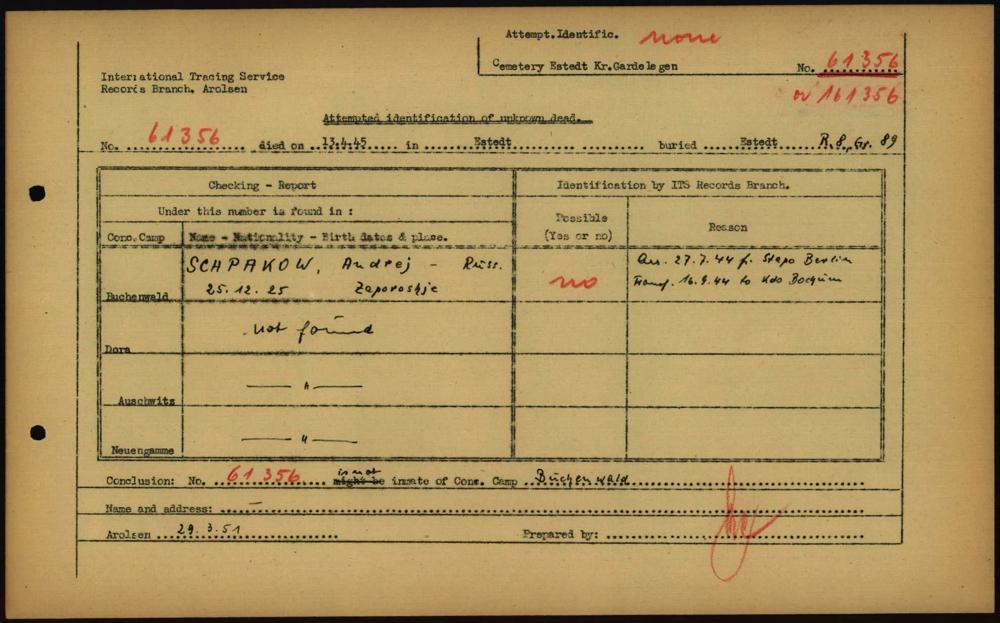 Attempt. Identific. none
Cemetery Estedt Kr. Gardelegen No. 61356
or 161356
International Tracing Service
Records Branch. Arolsen
Attempted identification of unknown dead.
No. 61356 died on 13.4.45 in Estedt buried Estedt R.8, Gr. 89
Checking - Report Identification by ITS Records Branch.
Under this number is found in : Possible
(Yes or no) Reason
Conc. Camp Name - Nationality - Birth dates & place.
SCHPAKOW, Andrej - Russ. Arr. 27.7.44 f. Stapo Berlin
Buchenwald 25.12.25 Zaporoshje no Transf. 16.9.44 to Kdo Bochum
Dora not found
Auschwitz — " —
Neuengamme — " —
Conclusion: No. 61356 is not might be inmate of Conc. Camp Buchenwald
Name and address: —
Arolsen 29.3.51 Prepared by: